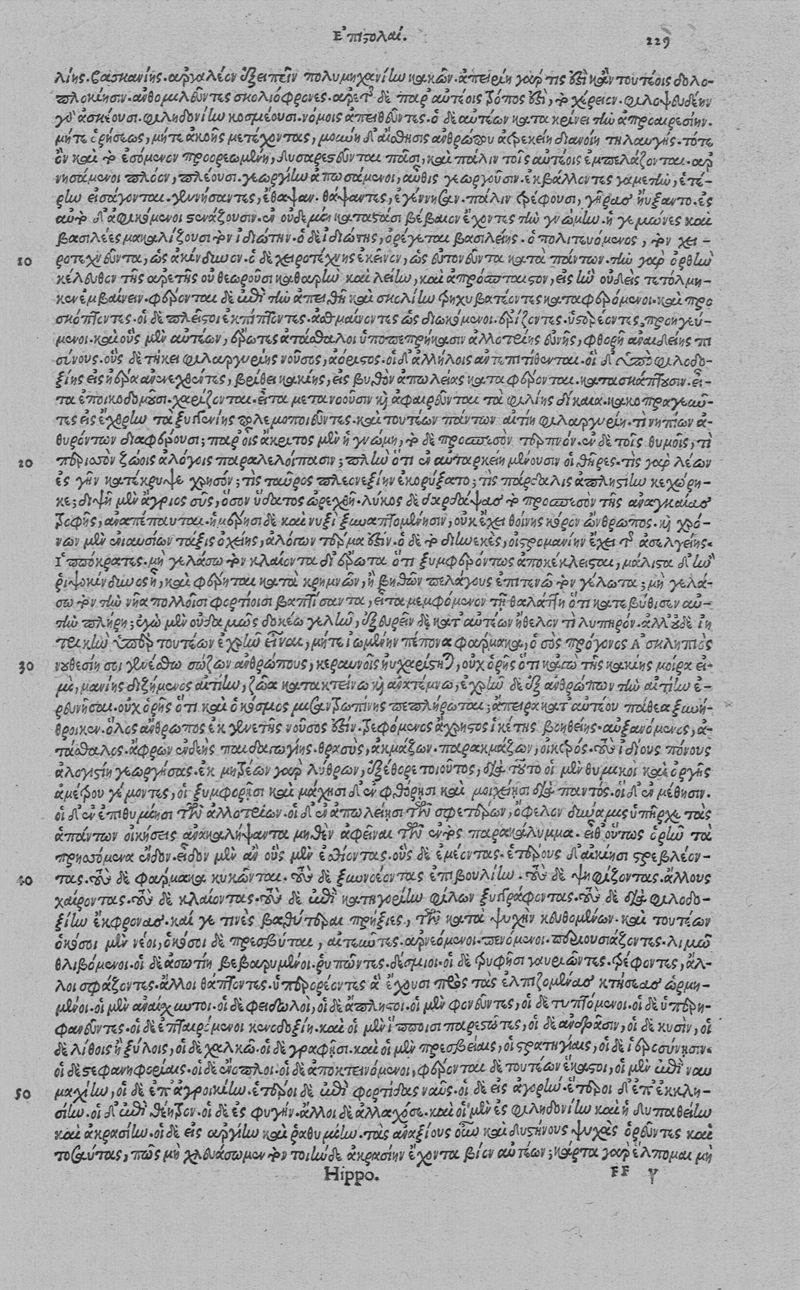 Ἐπιστολαί. 229
λίης. βασκανίης. ἀργαλέον ἐξειπεῖν πολυμηχανίην κακῶν. ἀπειρίη γάρ τις ἐστὶ κἀν τουτέοις δολο-
πλοκίησιν. ἁμιλλεῦντες σκολιόφρονες. ἀρετῆς δὲ παρ' αὐτέοις τρόπος ἐστὶ, τὸ χέρειον. φιλοψευδίην
γὰρ ἀσκέουσι. φιληδονίην κοσμέουσι. νόμοις ἀπειθεῦντες. ὁ δὲ αὐτέων κατακρίνει τὴν ἀπροαιρεσίην.
μήτε ὁρήσεως, μήτε ἀκοῆς μετέχοντας, μούνη δ' αἴσθησις ἀνθρώπου ἀτρεκείη διανοίη τηλαυγής. τότε
ὂν καὶ τὸ ἐσόμενον προορεωμένη, δυσαρεστεῦνται πᾶσι, καὶ πάλιν τοῖς αὐτέοις ἐμπελάζονται. ἀρ
νησάμενοι πλόον, πλέουσι. γεωργίην ἀπωσάμενοι, αὖθις γεωργοῦσιν. ἐκβάλλοντες γαμετὴν, ἑτέ-
ρην εἰσάγονται. γεννήσαντες, ἔθαψαν. θάψαντες, ἐγέννησαν. πάλιν τρέφουσι, γῆρας ηὔξαντο. ἐς
αὐτὸ δ' ἀφικόμενοι στενάζουσιν. ἐν οὐδεμιῇ καταστάσει βέβαιον ἔχοντες τὴν γνώμην. ἡγεμόνες καὶ
βασιλέες μακαρίζουσι τὸν ἰδιώτην. ὁ δὲ ἰδιώτης, ὀρέγεται βασιλείης. ὁ πολιτευόμενος, τὸν χει-
10 ροτεχνεῦντα, ὡς ἀκίνδυνον. ὁ δὲ χειροτέχνης ἐκεῖνον, ὡς εὐτονεῦντα κατὰ πάντων. τὴν γὰρ ὀρθὴν
κέλευθον τῆς ἀρετῆς οὐ θεωροῦσι καθαρὴν καὶ λείην, καὶ ἀπρόσπταιστον, εἰς ἣν οὐδεὶς τετόλμη-
κεν ἐμβαίνειν. φέρονται δὲ ἐπὶ τὴν ἀπειθῆ καὶ σκολιὴν τρηχυβατέοντες καταφερόμενοι. καὶ προσ
σκόπτοντες. οἱ δὲ πλεῖστοι ἐκπίπτοντες. ἀσθμαίνοντες ὡς διωκόμενοι. ἐρίζοντες. ὑστερέοντες, προηγεύ-
μενοι. καὶ οὓς μὲν αὐτέων, ἔρωτες ἀτάσθαλοι ὑποπεπρήκασιν ἀλλοτρίης εὐνῆς, φθορῇ ἀναιδείης πι
σύνους. οὓς δὲ τήκει φιλαργυρίης νοῦσος, ἀόριστος. οἱ δ' ἀλλήλοις ἀντεπιτίθενται. οἱ δ' ὑπὸ φιλοδο-
ξίης εἰς ἠέρα ἀνενεχθέντες, βρίθει κακίης, εἰς βυθὸν ἀπωλείας καταφέρονται. κατασκάπτουσιν. εἶ-
τα ἐποικοδομοῦσι. χαρίζονται. εἶτα μετανοοῦσιν καὶ ἀφαιρεῦνται τὰ φιλίης δίκαια. κακοπραγεῦν-
τες εἰς ἔχθρην τὰ ξυγγενίης πολεμοποιεῦντες. καὶ τουτέων πάντων αἰτίη φιλαργυρίη. τί νηπίων ἀ-
θυρόντων διαφέρουσι; παρ' οἷς ἄκριτος μὲν ἡ γνώμη, τὸ δὲ προσπεσὸν τερπνόν. ἐν δὲ τοῖς θυμοῖς, τί
20 περισσὸν ζώοις ἀλόγοις παραλελοίπασιν; πλὴν ὅτι ἐν αὐταρκείῃ μένουσιν οἱ θῆρες. τίς γὰρ λέων
ἐς γῆν κατέκρυψε χρυσόν; τίς ταῦρος πλεονεξίην ἐκορύξατο; τίς πάρδαλις ἀπληστίην κεχώρη-
κε; διψῇ μὲν ἄγριος σῦς, ὅσον ὕδατος ὠρέχθη. λύκος δὲ δαρδάψας τὸ προσπεσὸν τῆς ἀναγκαίας
τροφῆς, ἀναπέπαυται. ἡμέρῃσι δὲ καὶ νυξὶ ξυναπτομένῃσιν, οὐκ ἔχει θοίνης κόρον ὤνθρωπος. καὶ χρό-
νων μὲν ἐνιαυσίων τάξις ὀχείης, ἀλόγων τέρμα ἐστίν. ὁ δὲ τὸ διηνεκὲς, οἰστρομανίην ἔχει τῆς ἀσελγείης.
Ἱππόκρατες. μὴ γελάσω τὸν κλαίοντα δι' ἔρωτα ὅτι ξυμφερόντως ἀποκέκλεισται, μάλιστα δ' ἢν
ῥιψοκίνδυνος ᾖ, καὶ φέρηται κατὰ κρημνῶν, ἢ βυθῶν πελάγους ἐπιτενῶ τὸν γέλωτα; μὴ γελά-
σω τὸν τὴν νῆα πολλοῖσι φορτίοισι βαπτίσαντα, εἶτα μεμφόμενον τῇ θαλάττῃ ὅτι κατεβύθισεν αὐ-
τὴν πλήρη; ἐγὼ μὲν οὐδαμῶς δοκέω γελῆν, ἐξευρεῖν δὲ κατ' αὐτέων ἤθελόν τι λυπηρόν. ἀλλ' οὐδὲ ἰη
τρικὴν ὑπὲρ τουτέων ἐχρῆν εἶναι, μήτε ἰωμένην πέπονα φάρμακα, ὁ σὸς πρόγονος Ἀσκληπιὸς
30 νουθεσίη σοι γινέσθω σώζων ἀνθρώπους, κεραυνοῖς ηὐχαρίστηται, οὐχ ὁρῇς ὅτι κἀγὼ τῆς κακίης μοῖρα εἰ-
μι, μανίης διζήμενος αἰτίην, ζῶα κατακτείνω καὶ ἀνατέμνω, ἐχρῆν δὲ ἐξ ἀνθρώπων τὴν αἰτίην ἐ-
ρευνῆσαι. οὐχ ὁρῇς ὅτι καὶ ὁ κόσμος μισανθρωπίης πεπλήρωται; ἄπειρα κατ' αὐτέου πάθεα ξυνή-
θροικεν. ὅλος ἄνθρωπος ἐκ γενετῆς νοῦσός ἐστιν. τρεφόμενος ἄχρηστος ἱκέτης βοηθείης. αὐξανόμενος, ἀ-
τάσθαλος. ἄφρων ἐνδεὴς παιδαγωγίης. θρασὺς, ἀκμάζων. παρακμάζων, οἰκτρός. τοὺς ἰδίους πόνους
ἀλογιστίῃ γεωργήσας. ἐκ μητρῴων γὰρ λύθρων, ἐξέθορε τοιοῦτος, διὰ τοῦτο οἱ μὲν θυμικοὶ καὶ ὀργῆς
ἀμέτρου γέμοντες, οἱ ξυμφορῇσι καὶ μάχῃσι δ' ἐν φθορῇσι καὶ μοιχείῃσι διὰ παντός. οἱ δ' ἐν μέθῃσιν.
οἱ δ' ἐν ἐπιθυμίῃσι τῶν ἀλλοτρίων. οἱ δ' ἐν ἀπωλείῃσι τῶν σφετέρων, ὄφελον δύναμις ὑπῆρχε τὰς
ἁπάντων οἰκήσεις ἀνακαλύψαντα μηδὲν ἀφεῖναι τῶν ἐντὸς παρακάλυμμα. εἶθ' οὕτως ὁρῆν τὰ
πρησσόμενα ἔνδον. εἶδον μὲν ἂν οὓς μὲν ἐσθίοντας. οὓς δὲ ἐμέοντας. ἑτέρους δ' αἰκίῃσι στρεβλέον-
40 τας. τοὺς δὲ φάρμακα κυκῶντας. τοὺς δὲ ξυννοέοντας ἐπιβουλίην. τοὺς δὲ ψηφίζοντας. ἄλλους
χαίροντας. τοὺς δὲ κλαίοντας. τοὺς δὲ ἐπὶ κατηγορίην φίλων ξυγγράφοντας. τοὺς δὲ διὰ φιλοδο-
ξίην ἔκφρονας. καί γε τινὲς βαθύτεραι πρήξιες, τῶν κατὰ ψυχὴν κευθομένων. καὶ τουτέων
ὁκόσοι μὲν νέοι, ὁκόσοι δὲ πρεσβῦται, αἰτεῦντες. ἀρνεόμενοι. πενόμενοι. περιουσιάζοντες. λιμῷ
θλιβόμενοι. οἱ δὲ ἀσωτίῃ βεβαρημένοι. ῥυπῶντες. δέσμιοι. οἱ δὲ τρυφῇσι γαυριῶντες. τρέφοντες, ἄλ-
λοι σφάζοντες. ἄλλοι θάπτοντες. ὑπερορέοντες ἃ ἔχουσι πρὸς τὰς ἐλπιζομένας κτήσιας ὡρμη-
μένοι. οἱ μὲν ἀναίσχυντοι. οἱ δὲ φειδωλοί, οἱ δὲ ἄπληστοι. οἱ μὲν φονεῦντες, οἱ δὲ τυπτόμενοι. οἱ δὲ ὑπερη-
φανεῦντες. οἱ δὲ ἐπταιρόμενοι κενοδοξίῃ. καὶ οἱ μὲν ἵπποισι παρεστῶτες, οἱ δὲ ἀνδράσιν, οἱ δὲ κυσὶν, οἱ
δὲ λίθοις ἢ ξύλοις, οἱ δὲ χαλκῷ. οἱ δὲ γραφῇσι. καὶ οἱ μὲν πρεσβείαις, οἱ στρατηγίαις, οἱ δὲ ἱεροσύνῃσιν.
οἱ δὲ στεφανηφορίαις. οἱ δὲ ἔνοπλοι. οἱ δὲ ἀποκτεινόμενοι, φέρονται δὲ τουτέων ἕκαστοι, οἱ μὲν ἐπὶ ναυ
50 μαχίην, οἱ δὲ ἐπ' ἀγροικίην. ἕτεροι δὲ ἐπὶ φορτίδας ναῦς. οἱ δὲ εἰς ἀγορήν. ἕτεροι δ' ἐπ' ἐκκλη-
σίην. οἱ δ' ἐπὶ θέητρον. οἱ δὲ ἐς φυγήν. ἄλλοι δὲ ἀλλαχόσε. καὶ οἱ μὲν ἐς φιληδονίην καὶ ἡδυπαθείην
καὶ ἀκρασίην. οἱ δὲ εἰς ἀργίην καὶ ῥαθυμίην. τὰς ἀναξίους οὖν καὶ δυστήνους ψυχὰς ὁρεῦντες καὶ
τοσαύτας, πῶς μὴ χλευάσωμεν τὸν τοιήνδε ἀκρασίην ἔχοντα βίον αὐτέων; κάρτα γὰρ ἔλπομαι μὴ
Hippo. FF v